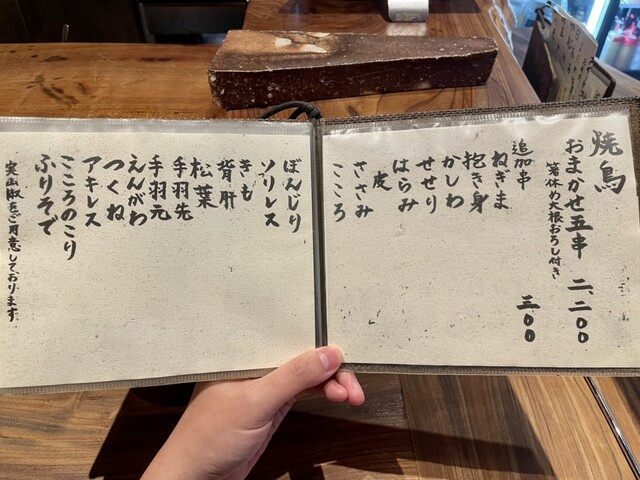 焼鳥
おまかせ五串 二、二〇〇
箸休め大根おろし付き
追加串 三〇〇
ねぎま
抱き身
かしわ
せせり
はらみ
皮
ささみ
こころ
ぼんじり
ソリレス
きも
背肝
松葉
手羽先
手羽元
えんがわ
つくね
アキレス
こころのこり
ふりそで
実山椒もご用意しております。